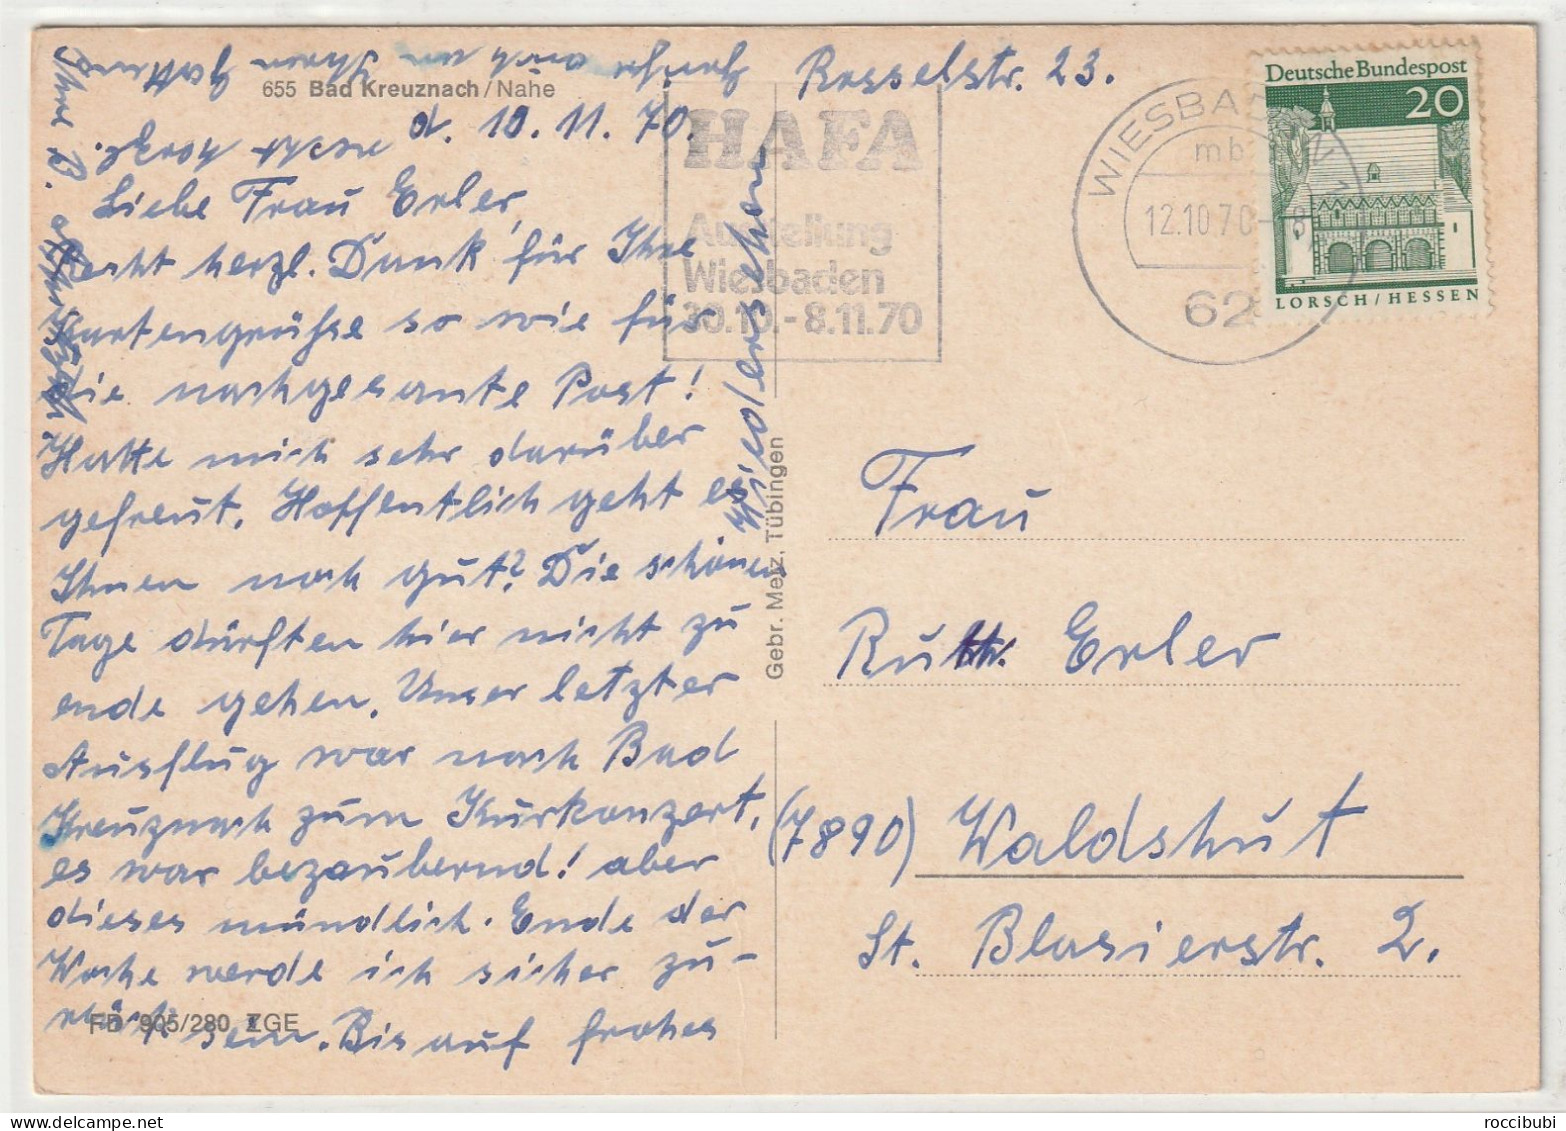 Rosselstr. 23.
655 Bad Kreuznach/Nahe
d. 10.11.70.
Liebe Frau Erler,
Recht herzl. Dank für Ihre
Kartengrüsse so wie für
die nachgesante Post!
Hatte mich sehr darüber
gefreut. Hoffentlich geht es
Ihnen noch gut? Die schönen
Tage dürften hier nicht zu
ende gehen. Unser letzter
Ausflug war nach Bad
Kreuznach zum Kurkonzert,
es war bezaubernd! aber
dieses mündlich. Ende der
Woche werde ich sicher zu-
rück sein. Bis auf frohes
Wiedersehen
Ihre B.
auch an Ihren
recht
FB 905/280 ZGE
Gebr. Metz, Tübingen
HAFA
Ausstellung
Wiesbaden
30.10.-8.11.70
WIESBADEN 1
mb
12.10.70-18
62
Deutsche Bundespost
20
LORSCH/HESSEN
Frau
Ruth Erler
(7890) Waldshut
St. Blasierstr. 2.
roccibubi